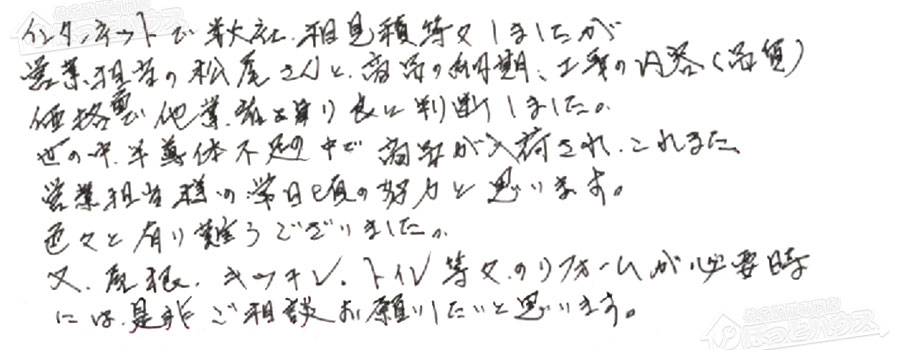 インターネットで数社、相見積等々しましたが
営業担当の松尾さんと、商品の納期、工事の内容(品質)
価格面で他業者より良と判断しました。
世の中、半導体不足の中で商品が入荷され、これまた
営業担当様の常日頃の努力と思います。
色々と有り難うございました。
又、屋根、キッチン、トイレ等々のリフォームが必要時
には、是非ご相談お願いしたいと思います。
ほっとハウス